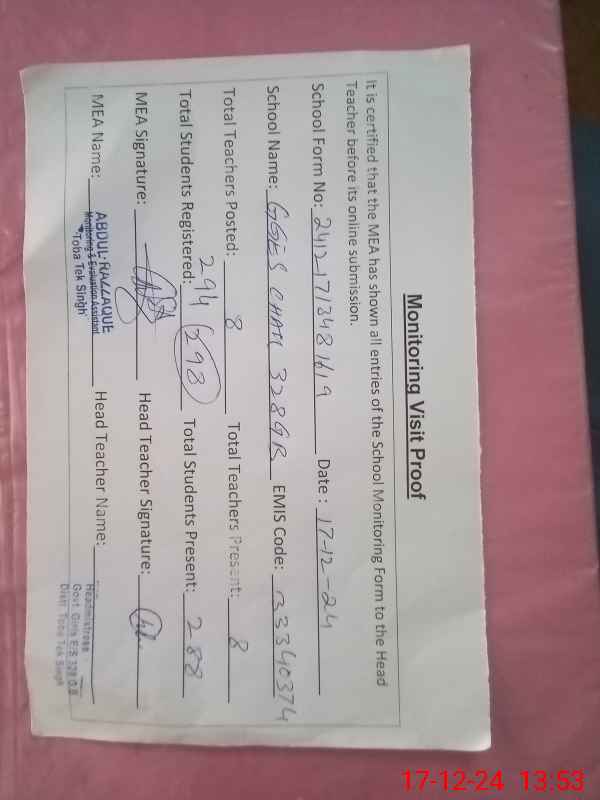 Monitoring Visit Proof
It is certified that the MEA has shown all entries of the School Monitoring Form to the Head
Teacher before its online submission.
School Form No: 24121713481619 Date : 17-12-24
School Name: GGES CHAK 328GB EMIS Code: 33340374
Total Teachers Posted: 8 Total Teachers Present: 8
Total Students Registered: 294 293 Total Students Present: 288
MEA Signature: Head Teacher Signature:
MEA Name: ABDUL RAZZAQUE Head Teacher Name:
Monitoring & Evaluation Assistant
Toba Tek Singh
Headmistress
Govt. Girls E/S 328 G.B.
Distt. Toba Tek Singh
17-12-24 13:53